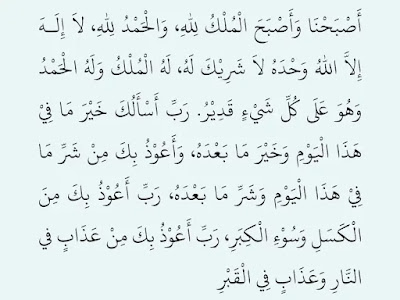 أَصْبَحْنَا وَأَصْبَحَ الْمُلْكُ لِلهِ، وَالْحَمْدُ لِلهِ، لاَ إِلَــهَ
إِلاَّ اللهُ وَحْدَهُ لاَ شَرِيْكَ لَهُ، لَهُ الْمُلْكُ وَلَهُ الْحَمْدُ
وَهُوَ عَلَى كُلِّ شَيْءٍ قَدِيْرُ. رَبِّ أَسْأَلُكَ خَيْرَ مَا فِيْ
هَذَا الْيَوْمِ وَخَيْرَ مَا بَعْدَهُ، وَأَعُوْذُ بِكَ مِنْ شَرِّ مَا
فِيْ هَذَا الْيَوْمِ وَشَرِّ مَا بَعْدَهُ، رَبِّ أَعُوْذُ بِكَ مِنَ
الْكَسَلِ وَسُوْءِ الْكِبَرِ، رَبِّ أَعُوْذُ بِكَ مِنْ عَذَابٍ في
النَّارِ وَعَذَابٍ فِي الْقَبْرِ